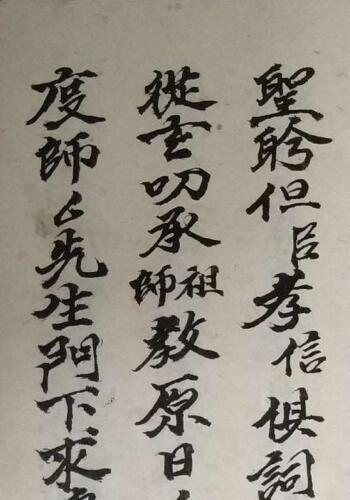 聖聆但臣孝信俱詞
從玄叨承祖師教原日
度師厶先生門下求